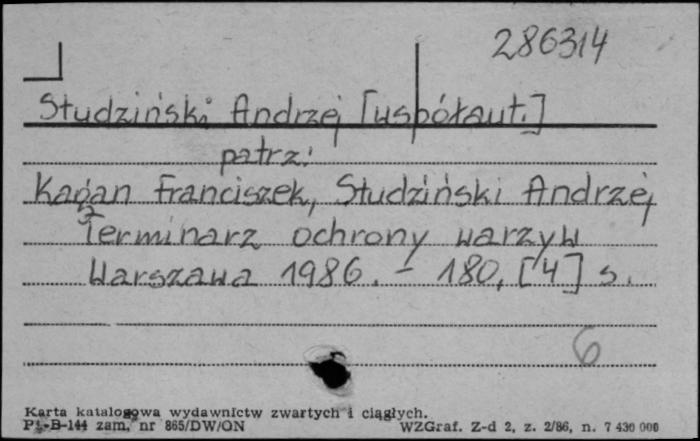 286314
Studziński Andrzej [współaut.]
patrz:
Kagan Franciszek, Studziński Andrzej
Terminarz ochrony warzyw
Warszawa 1986. – 180, [4] s.
6
Karta katalogowa wydawnictw zwartych i ciągłych.
Pł-B-144 zam. nr 865/DW/ON WZGraf. Z-d 2, z. 2/86, n. 7 430 000